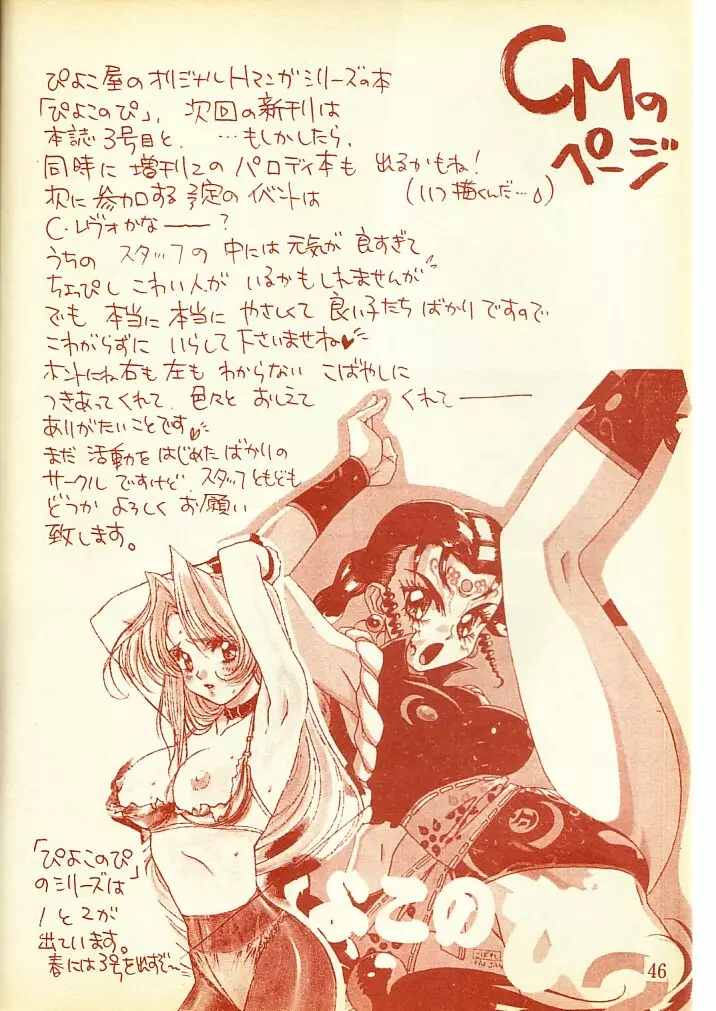 CMの
ページ
ぴよこ屋のオリジナルHマンガシリーズの本
「ぴよこのぴ」、次回の新刊は
本誌3号目と、…もしかしたら、
同時に増刊2のパロディ本も出るかもね!
(いつ描くんだ…)
次に参加する予定のイベントは
C・レヴォかな――?
うちのスタッフの中には元気が良すぎて
ちょっぴしこわい人がいるかもしれませんが
でも本当に本当にやさしくて良い子たちばかりですので
こわがらずにいらして下さいませね♥
ホントにね右も左もわからないこばやしに
つきあってくれて、色々とおしえてくれて――
ありがたいことです♥
まだ活動をはじめたばかりの
サークルですけど、スタッフともども
どうかよろしくお願い
致します。
「ぴよこのぴ」
のシリーズは
1と2が
出ています。
春には3号を出すぞ〜
よこの
46